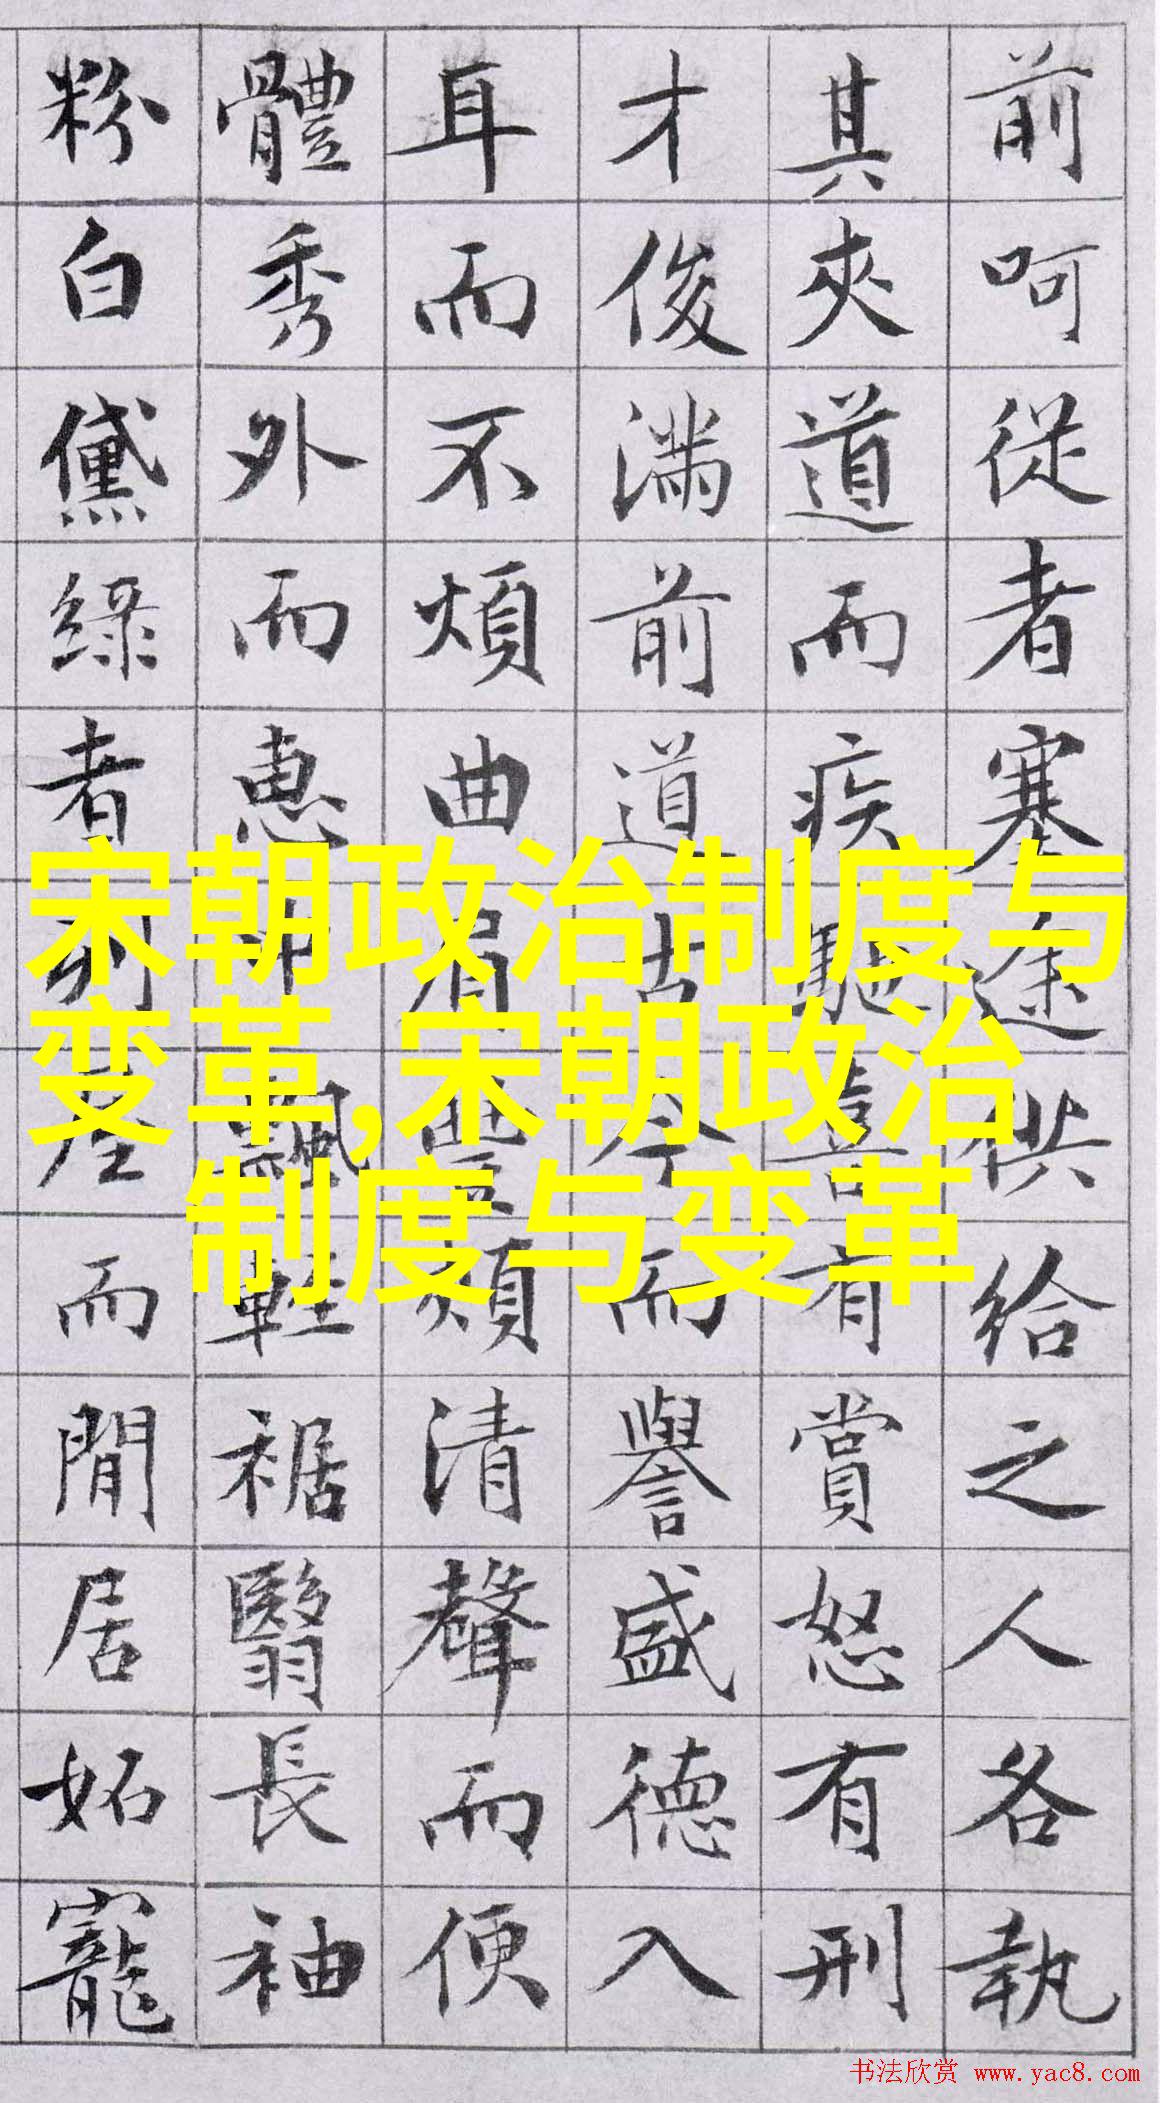 前呵從者塞途供給之人各執
其夾道而疾驅喜有賞怒有刑
才俊滿前道古今而譽盛德入
耳而不煩曲眉豐頰清聲而便
體秀外而惠中飄輕裾翳長袖
粉白黛綠者列屋而閒居妬寵
宋朝政治制度与
变革,宋朝政治
制度与变革
书法欣赏 www.yac8.com